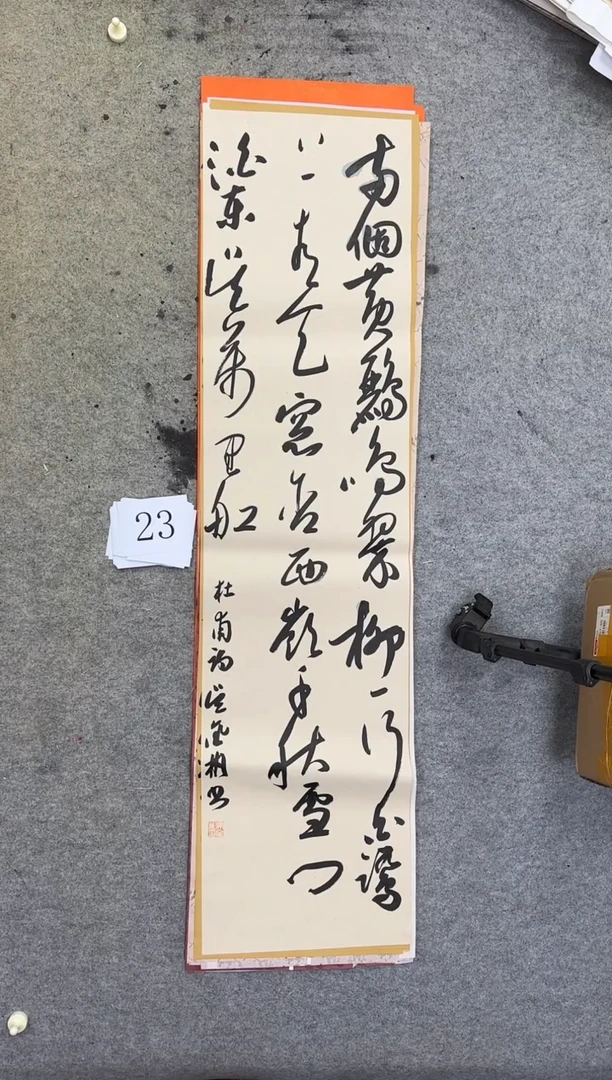 兩個黃鸝鳴翠柳一行白鷺
上青天窓含西嶺千秋雪門
泊東吳萬里船
杜甫詩
書
23